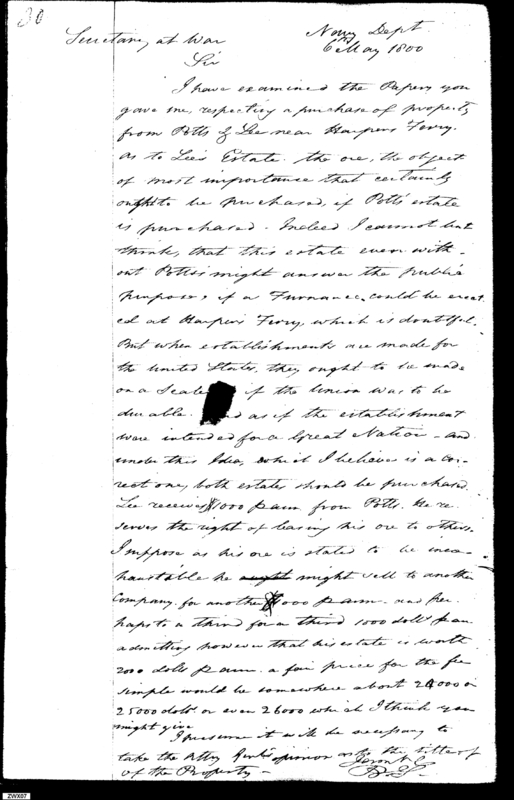 80
Navy Dept
6 May 1800
Secretary at War
Sir
I have examined the Papers you
gave me, respecting a purchase of property
from Potts & Lee near Harpers Ferry.
as to Lee's Estate. the ore, the object
of most importance that certainly
ought to be purchased, if Potts estate
is purchased. Indeed I cannot but
think, that this estate even with-
out Potts's might answer the public
purposes, if a Furnance could be erect
ed at Harpers Ferry, which is doubtful.
But when establishments are made for
the United States, they ought to be made
on a Scale if the Union was to be
durable. and as if the establishment
were intended for a Great Nation - and
under this Idea, which I believe is a cor-
rect one, both estates should be purchased.
Lee receives $1000 p ann from Potts. He re
serves the right of leasing his ore to others.
I suppose as his ore is stated to be inex-
haustable he ought might sell to another
Company, for another $1000 p ann. and per
haps to a third for a third 1000 dolls p an.
admitting however that his estate is worth
2000 dolls p ann. a fair price for the fee
simple would be somewhere about 24000 or
25000 dolls or even 26000 which I think you
might give
I presume it will be necessary to
take the Atty Genls opinion as to the title of
of the Property -
I am &c
B. S.
ZWX07